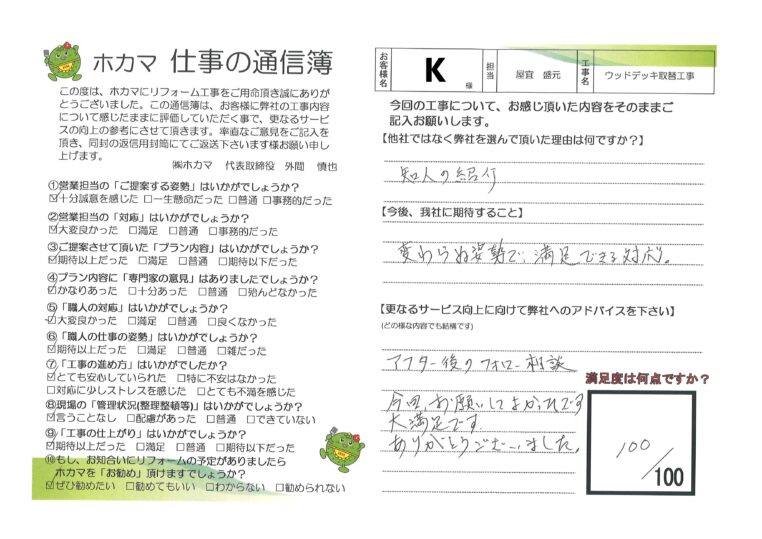 ホカマ 仕事の通信簿
この度は、ホカマにリフォーム工事をご用命頂き誠にありが
とうございました。この通信簿は、お客様に弊社の工事内容
について感じたままに評価していただく事で、更なるサービ
スの向上の参考にさせて頂きます。率直なご意見をご記入を
頂き、同封の返信用封筒にてご返送下さいます様お願い申し
上げます。
㈱ホカマ 代表取締役 外間 慎也
①営業担当の「ご提案する姿勢」はいかがでしょうか？
☑十分誠意を感じた □一生懸命だった □普通 □事務的だった
②営業担当の「対応」はいかがでしょうか？
☑大変良かった □満足 □普通 □事務的だった
③ご提案させて頂いた「プラン内容」はいかがでしょうか？
☑期待以上だった □満足 □普通 □期待以下だった
④プラン内容に「専門家の意見」はありましたでしょうか？
☑かなりあった □十分あった □普通 □殆んどなかった
⑤「職人の対応」はいかがでしょうか？
☑大変良かった □満足 □普通 □良くなかった
⑥「職人の仕事の姿勢」はいかがでしょうか？
☑期待以上だった □満足 □普通 □雑だった
⑦「工事の進め方」はいかがでしたか？
☑とても安心していられた □特に不安はなかった
□対応に少しストレスを感じた □とても不満を感じた
⑧現場の「管理状況(整理整頓等)」はいかがでしょうか？
☑言うことなし □配慮があった □普通 □できていない
⑨「工事の仕上がり」はいかがでしょうか？
☑期待以上だった □満足 □普通 □期待以下だった
⑩もし、お知合いにリフォームの予定がありましたら
ホカマを「お勧め」頂けますでしょうか？
☑ぜひ勧めたい □勧めてもいい □わからない □勧められない
お客様名 K 様 担当 屋宜 盛元 工事名 ウッドデッキ取替工事
今回の工事について、お感じ頂いた内容をそのままご
記入お願いします。
【他社ではなく弊社を選んで頂いた理由は何ですか？】
知人の紹介
【今後、我社に期待すること】
変わらぬ姿勢で、満足できる対応。
【更なるサービス向上に向けて弊社へのアドバイスを下さい】
(どの様な内容でも結構です)
アフター後のフォロー相談
今回、お願いしてよかったです
大満足です。
ありがとうございました。
満足度は何点ですか？
100
/100